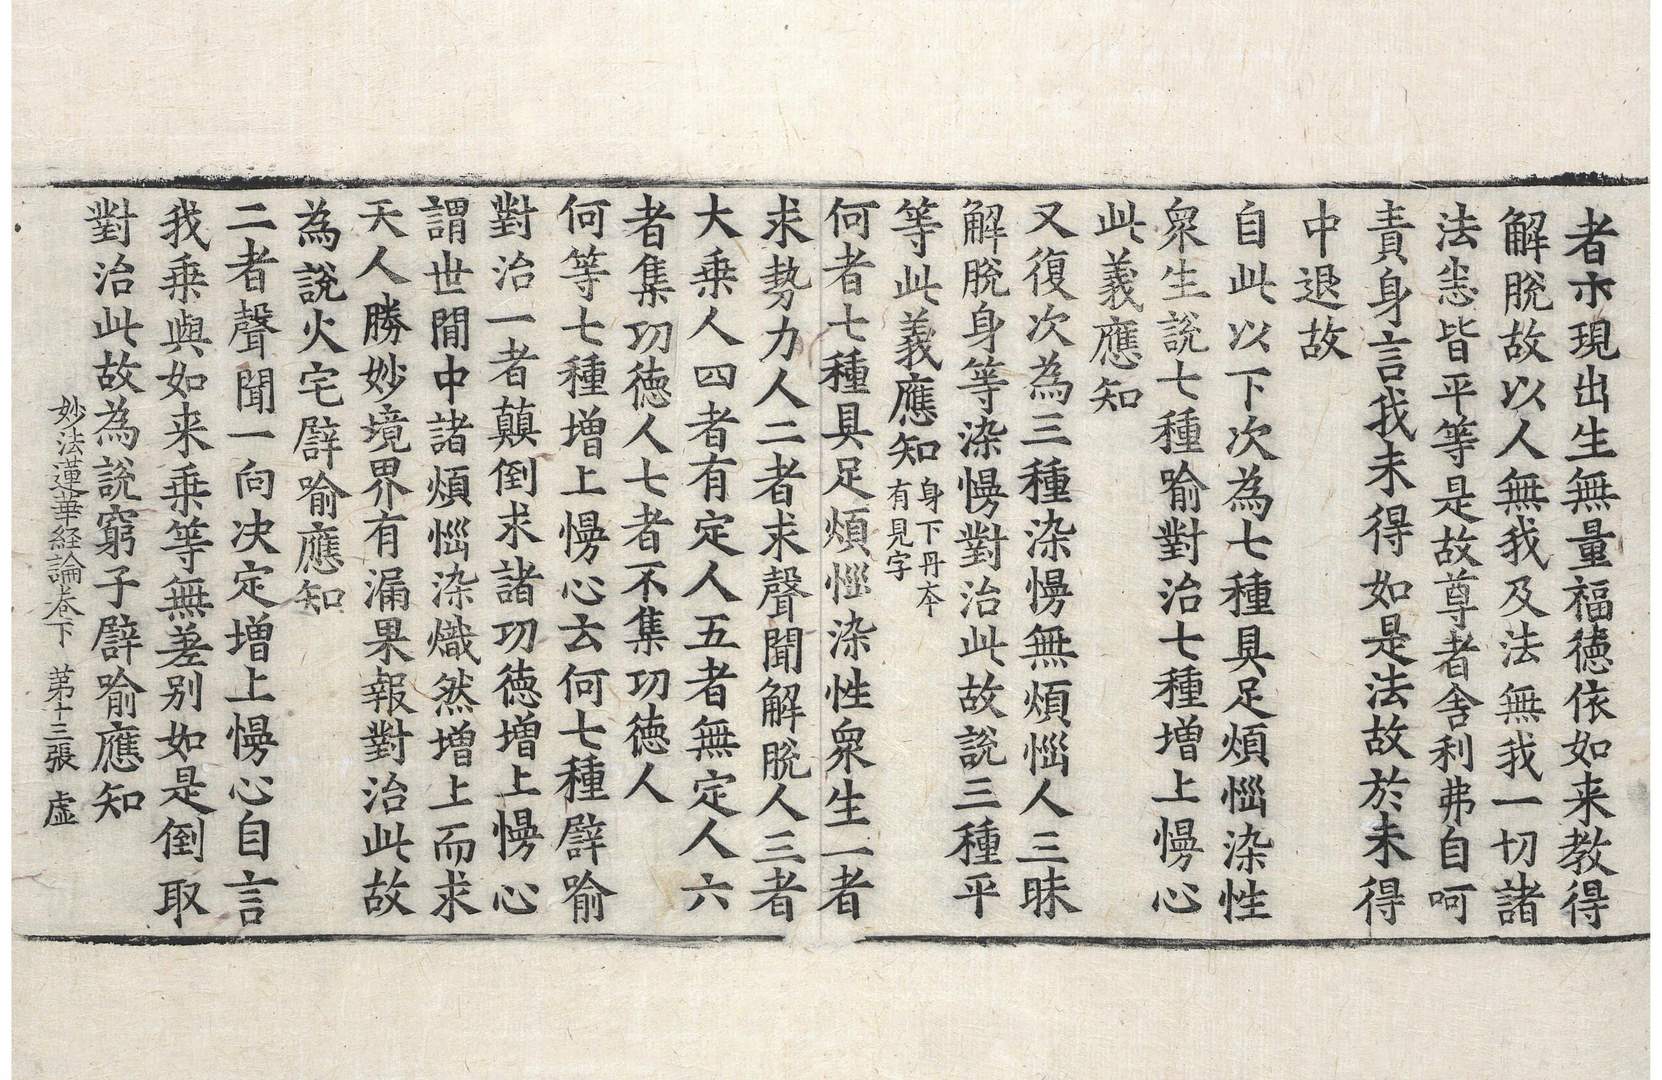 者示現出生無量福德依如来教得
解脫故以人無我及法無我一切諸
法悉皆平等是故尊者舍利弗自呵
責身言我未得如是法故於未得
中退故
自此以下次為七種具足煩惱染性
衆生說七種喻對治七種增上慢心
此義應知
又復次為三種染慢無煩惱人三昧
解脫身等染慢對治此故說三種平
等此義應知身下丹本有見字
何者七種具足煩惱染性衆生一者
求勢力人二者求聲聞解脫人三者
大乗人四者有定人五者無定人六
者集功德人七者不集功德人
何等七種增上慢心云何七種譬喻
對治一者顛倒求諸功德增上慢心
謂世間中諸煩惱染熾然增上而求
天人勝妙境界有漏果報對治此故
為說火宅譬喻應知
二者聲聞一向決定增上慢心自言
我乗與如来乗等無差別如是倒取
對治此故為說窮子譬喻應知
妙法蓮華経論卷下 第十三張 虛